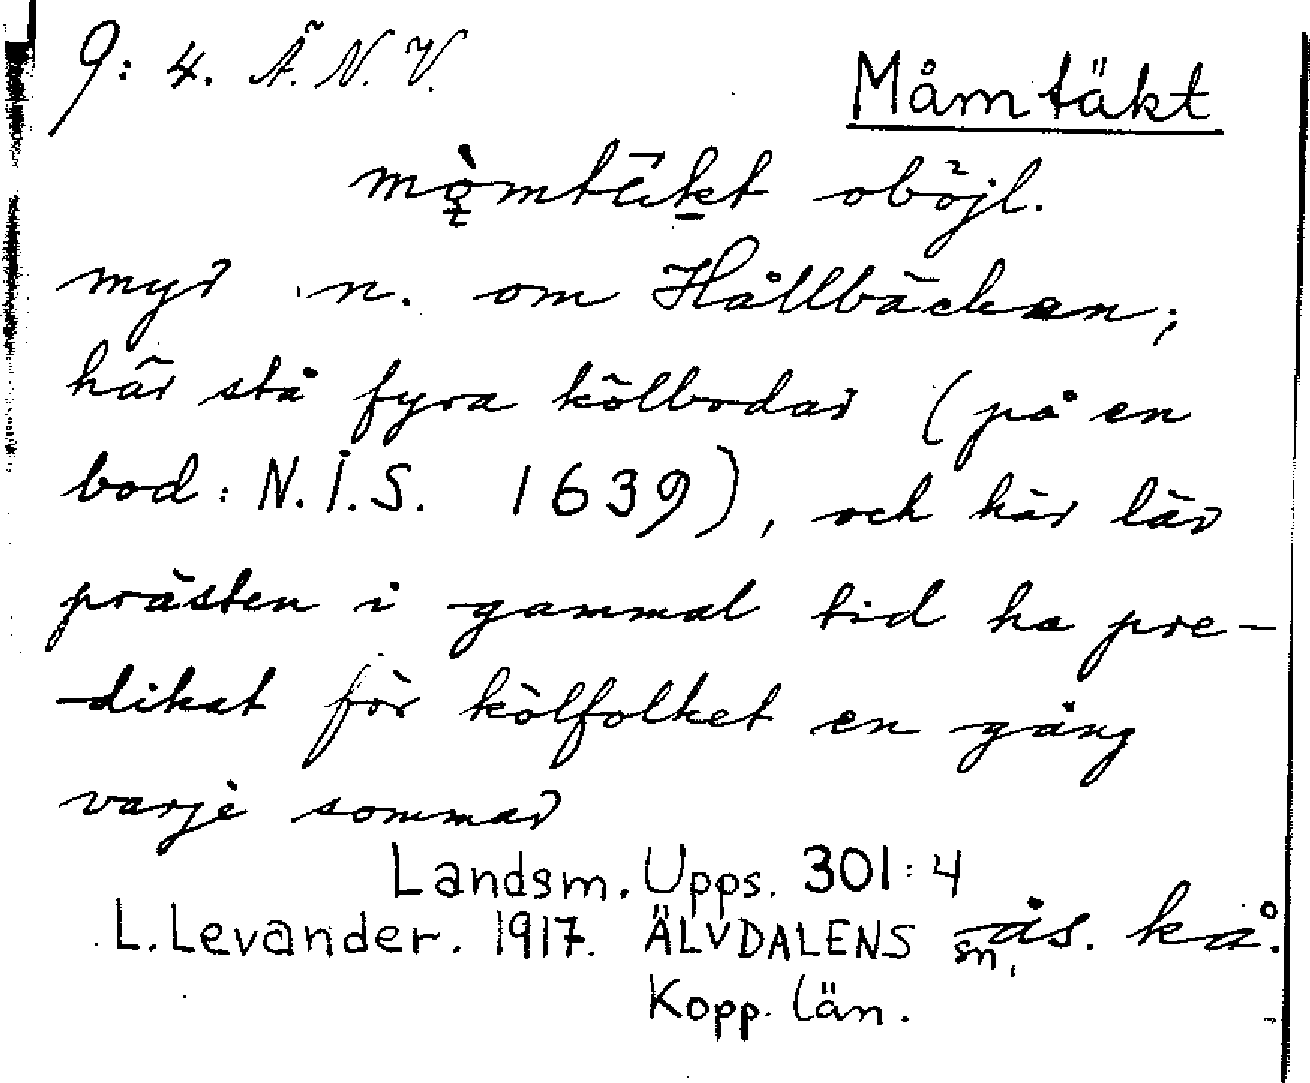 9: 4. Ä. N. V.
Måmtäkt
mǫ̀mtäkt oböjl.
myr n. om Hållbäcken;
här stå fyra kölbodar (på en
bod: N.I.S. 1639), och här lär
prästen i gammal tid ha pre-
dikat för kölfolket en gång
varje sommar
Landsm. Upps. 301:4
L. Levander. 1917. ÄLVDALENS sn. ås. kå.
Kopp. län.